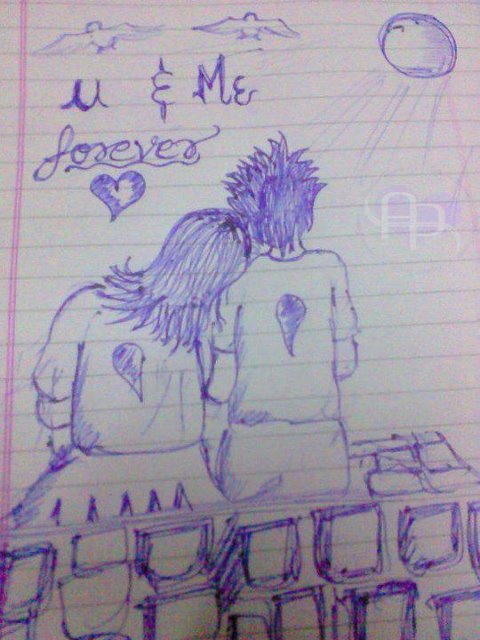 u & Me
forever
AP